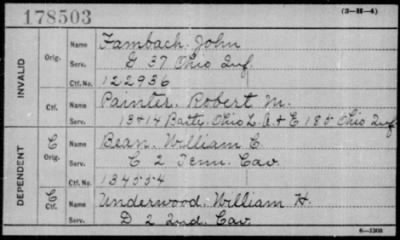 178503
(3-H-4)
INVALID
Orig.
Name Fambach, John
Serv. G 37 Ohio Inf.
Ctf. No. 122936
Ctf.
Name Painter, Robert M.
Serv. 13 & 14 Batts. Ohio L. A. & E 185 Ohio Inf.
DEPENDENT
C
Orig.
Name Bean, William C.
Serv. C 2 Tenn. Cav.
Ctf. No. 134554
C
Ctf.
Name Underwood, William H.
Serv. D 2 Ind. Cav.
6-1303